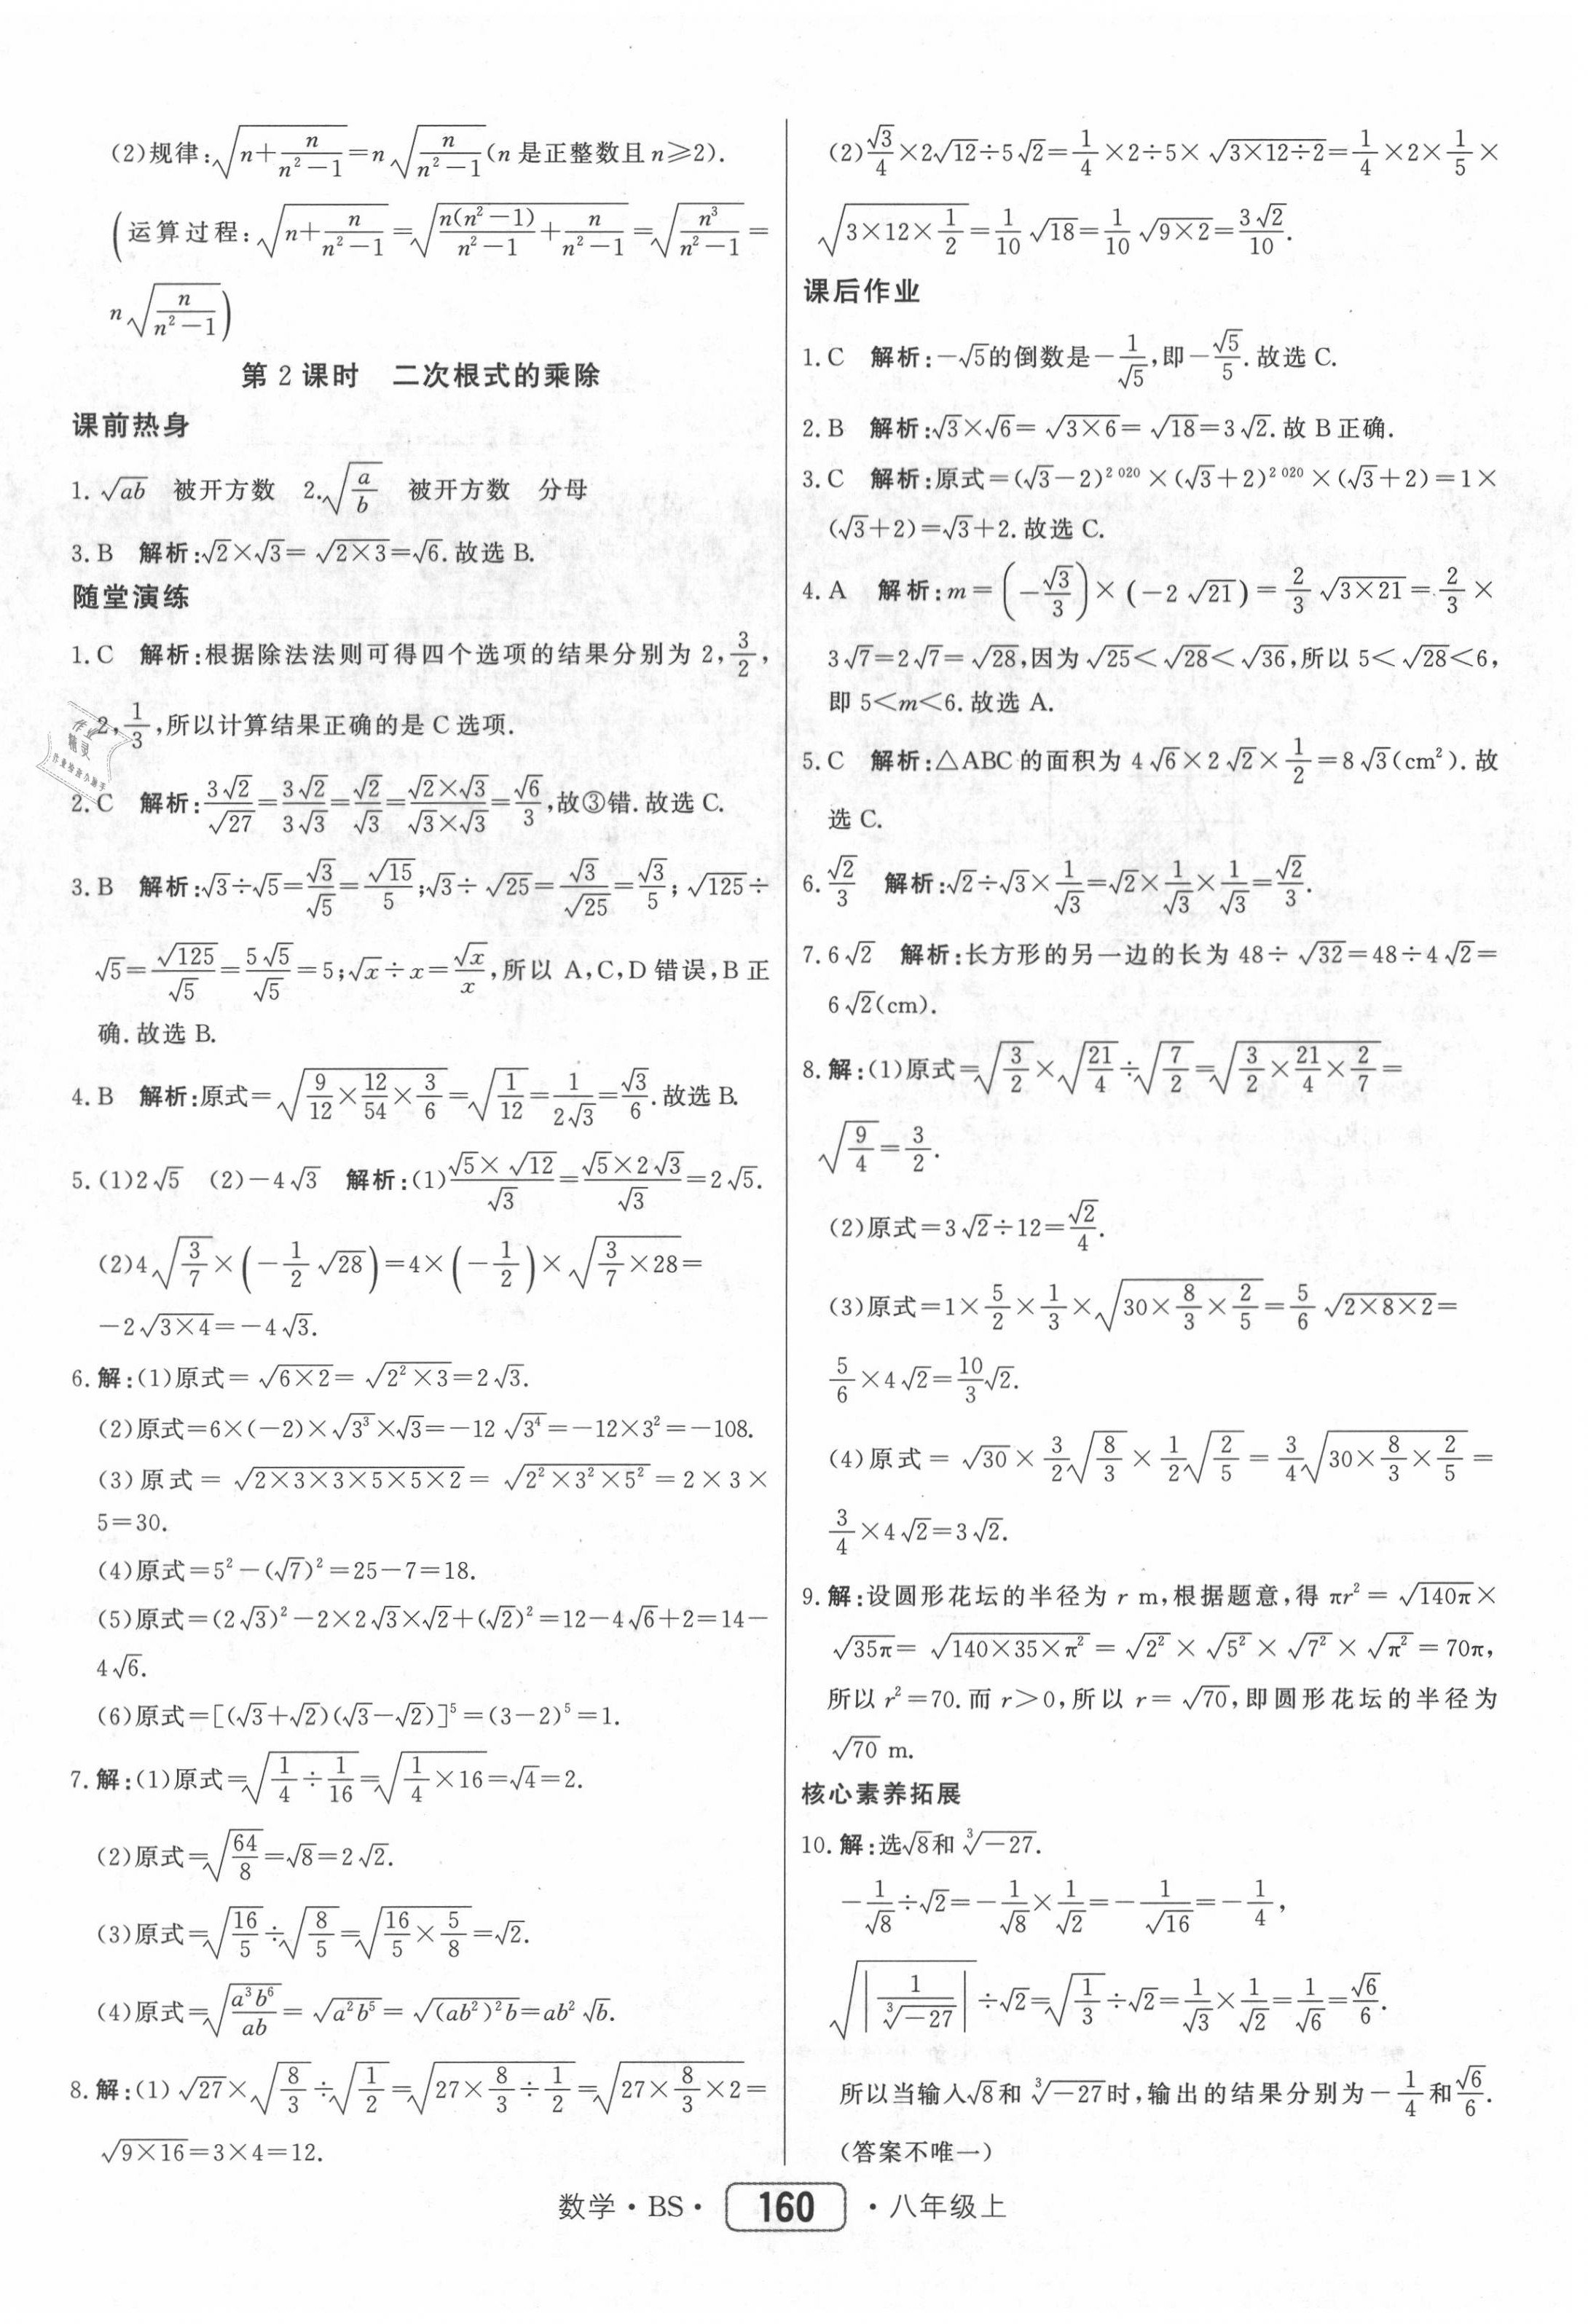 (2)规律:√(n+n/(n²−1))=n√(n/(n²−1))(n是正整数且n≥2).
(运算过程:√(n+n/(n²−1))=√(n(n²−1)/(n²−1)+n/(n²−1))=√(n³/(n²−1))=
n√(n/(n²−1)))
第2课时 二次根式的乘除
课前热身
1. √ab 被开方数 2.√(a/b) 被开方数 分母
3. B 解析:√2×√3=√(2×3)=√6.故选B.
随堂演练
1. C 解析:根据除法法则可得四个选项的结果分别为2,3/2,
2,1/3,所以计算结果正确的是C选项.
2. C 解析:3√2/√27=3√2/3√3=√2/√3=(√2×√3)/(√3×√3)=√6/3,故③错.故选C.
3. B 解析:√3÷√5=√3/√5=√15/5;√3÷√25=√3/√25=√3/5;√125÷
√5=√125/√5=5√5/√5=5;√x÷x=√x/x,所以A,C,D错误,B正
确.故选B.
4. B 解析:原式=√(9/12×12/54×3/6)=√(1/12)=1/(2√3)=√3/6.故选B.
5. (1)2√5 (2)−4√3 解析:(1)(√5×√12)/√3=(√5×2√3)/√3=2√5.
(2)4√(3/7)×(−1/2√28)=4×(−1/2)×√(3/7×28)=
−2√(3×4)=−4√3.
6. 解:(1)原式=√(6×2)=√(2²×3)=2√3.
(2)原式=6×(−2)×√3³×√3=−12√3⁴=−12×3²=−108.
(3)原式=√(2×3×3×5×5×2)=√(2²×3²×5²)=2×3×
5=30.
(4)原式=5²−(√7)²=25−7=18.
(5)原式=(2√3)²−2×2√3×√2+(√2)²=12−4√6+2=14−
4√6.
(6)原式=[(√3+√2)(√3−√2)]⁵=(3−2)⁵=1.
7. 解:(1)原式=√(1/4÷1/16)=√(1/4×16)=√4=2.
(2)原式=√(64/8)=√8=2√2.
(3)原式=√(16/5)÷√(8/5)=√(16/5×5/8)=√2.
(4)原式=√(a³b⁶/ab)=√(a²b⁵)=√((ab²)²b)=ab²√b.
8. 解:(1)√27×√(8/3)÷√(1/2)=√(27×8/3÷1/2)=√(27×8/3×2)=
√(9×16)=3×4=12.
(2)√3/4×2√12÷5√2=1/4×2÷5×√(3×12÷2)=1/4×2×1/5×
√(3×12×1/2)=1/10√18=1/10√(9×2)=3√2/10.
课后作业
1. C 解析:−√5的倒数是−1/√5,即−√5/5.故选C.
2. B 解析:√3×√6=√(3×6)=√18=3√2.故B正确.
3. C 解析:原式=(√3−2)²⁰²⁰×(√3+2)²⁰²⁰×(√3+2)=1×
(√3+2)=√3+2.故选C.
4. A 解析:m=(−√3/3)×(−2√21)=2/3√(3×21)=2/3×
3√7=2√7=√28,因为√25<√28<√36,所以5<√28<6,
即5<m<6.故选A.
5. C 解析:△ABC的面积为4√6×2√2×1/2=8√3(cm²).故
选C.
6. √2/3 解析:√2÷√3×1/√3=√2×1/√3×1/√3=√2/3.
7. 6√2 解析:长方形的另一边的长为48÷√32=48÷4√2=
6√2(cm).
8. 解:(1)原式=√(3/2)×√(21/4)÷√(7/2)=√(3/2×21/4×2/7)=
√(9/4)=3/2.
(2)原式=3√2÷12=√2/4.
(3)原式=1×5/2×1/3×√(30×8/3×2/5)=5/6√(2×8×2)=
5/6×4√2=10/3√2.
(4)原式=√30×3/2√(8/3)×1/2√(2/5)=3/4√(30×8/3×2/5)=
3/4×4√2=3√2.
9. 解:设圆形花坛的半径为r m,根据题意,得πr²=√140π×
√35π=√(140×35×π²)=√2²×√5²×√7²×√π²=70π,
所以r²=70.而r>0,所以r=√70,即圆形花坛的半径为
√70 m.
核心素养拓展
10. 解:选√8和∛−27.
−1/√8÷√2=−1/√8×1/√2=−1/√16=−1/4,
√|1/∛−27|÷√2=√(1/3)÷√2=1/√3×1/√2=1/√6=√6/6.
所以当输入√8和∛−27时,输出的结果分别为−1/4和√6/6.
(答案不唯一)
数学·BS· 160 ·八年级上